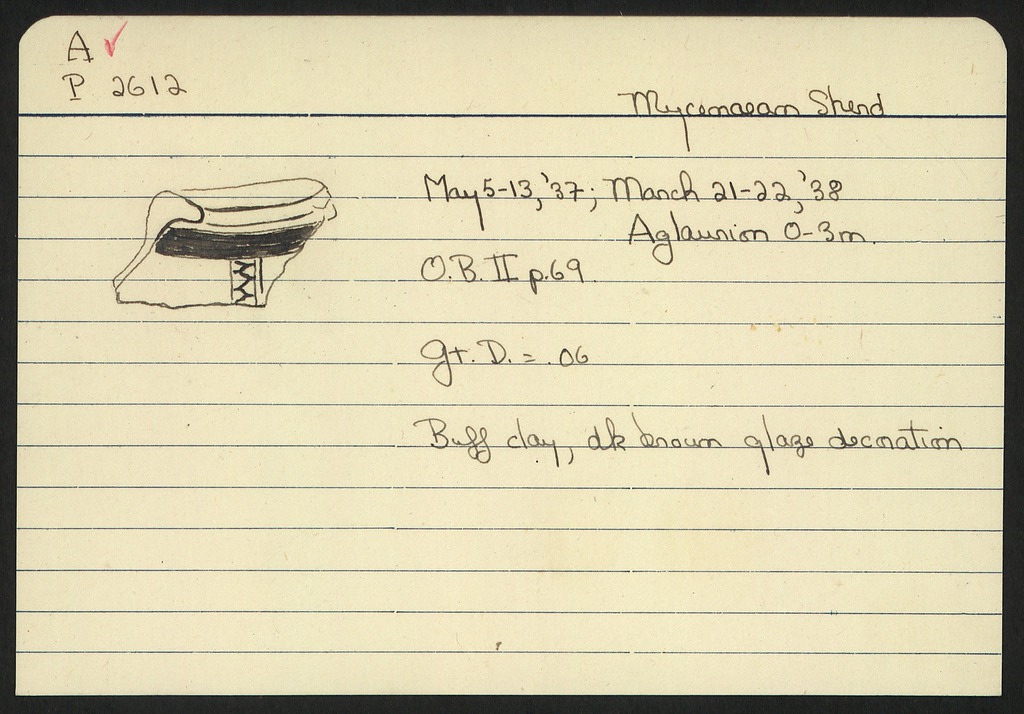 A ✓
P 2612
Mycenaean Sherd
May 5-13, '37; March 21-22, '38
Aglaurion 0-3m.
O.B. II p.69.
Gt. D. = .06
Buff clay, dk brown glaze decoration